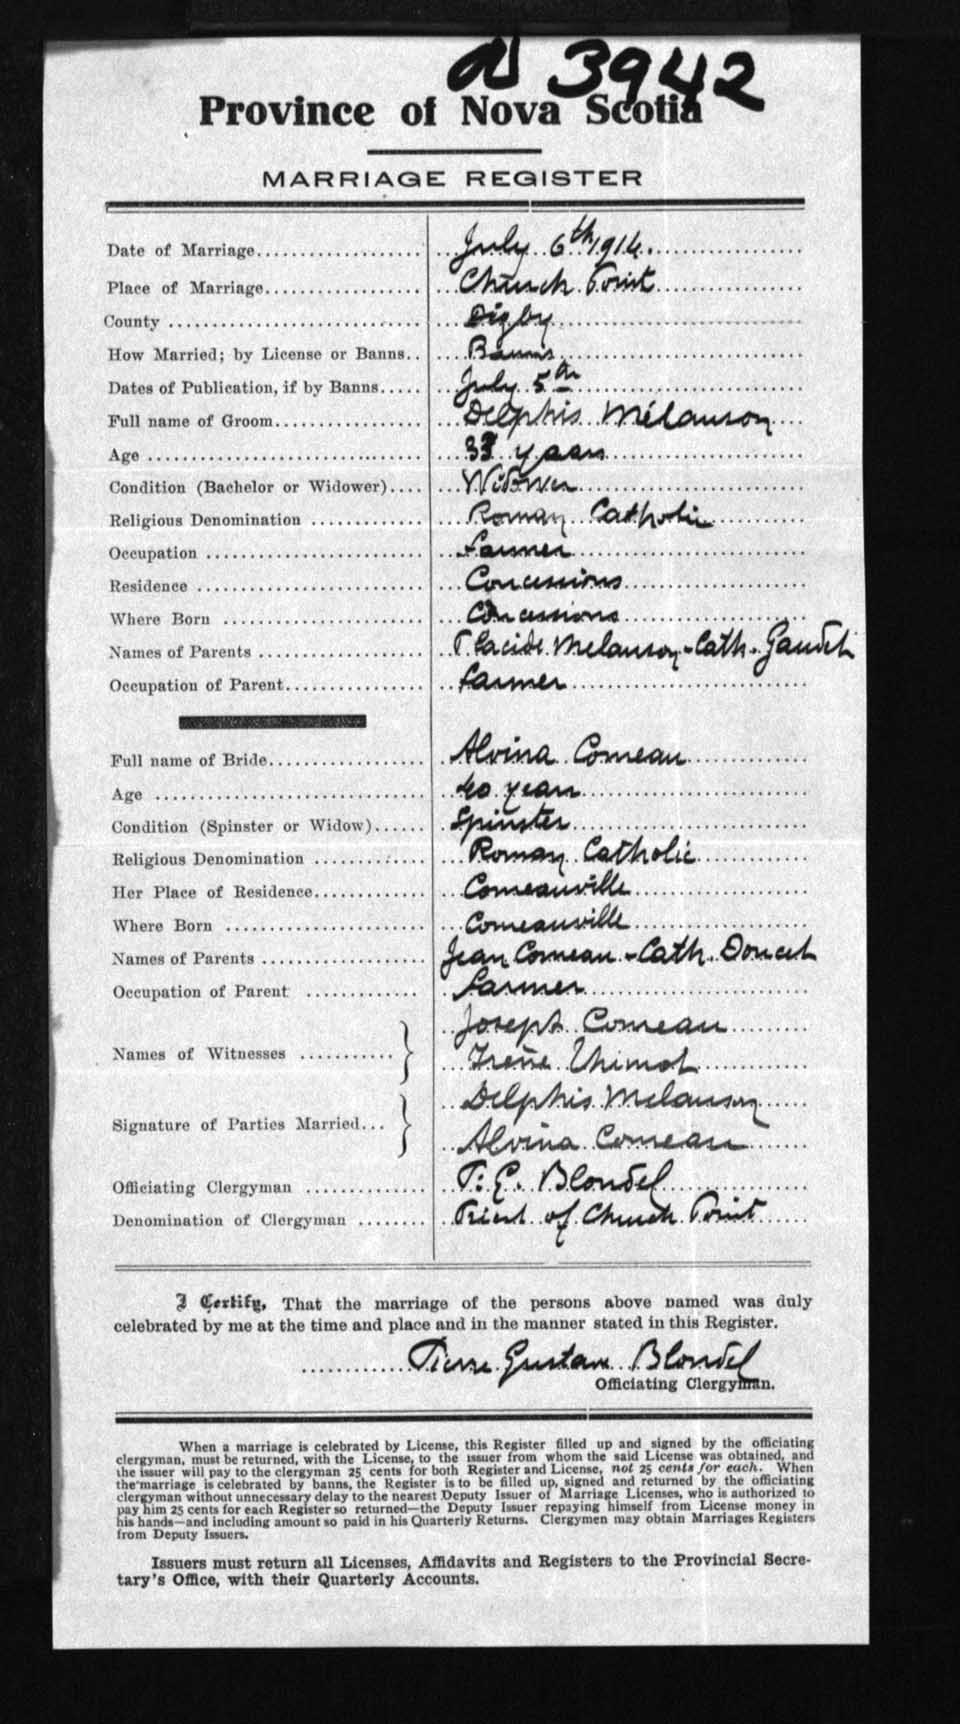 3942
Province of Nova Scotia
MARRIAGE REGISTER
Date of Marriage July 6th 1914.
Place of Marriage Church Point
County Digby
How Married; by License or Banns Banns
Dates of Publication, if by Banns July 5th
Full name of Groom Delphis Mélanson
Age years
Condition (Bachelor or Widower) Widower
Religious Denomination Roman Catholic
Occupation Farmer
Residence Concessions
Where Born Concessions
Names of Parents Placide Melanson - Cath. Gaudet
Occupation of Parent farmer
Full name of Bride Alvina Comeau
Age 40 years
Condition (Spinster or Widow) Spinster
Religious Denomination Roman Catholic
Her Place of Residence Comeauville
Where Born Comeauville
Names of Parents Jean Comeau - Cath. Doucet
Occupation of Parent farmer
Joseph Comeau
Names of Witnesses
Irene Thimot
Delphis Melanson
Signature of Parties Married
Alvina Comeau
Officiating Clergyman P. G. Blondel
Denomination of Clergyman Priest of Church Point
I Certify, That the marriage of the persons above named was duly
celebrated by me at the time and place and in the manner stated in this Register.
Pierre Gustave Blondel
Officiating Clergyman.
When a marriage is celebrated by License, this Register filled up and signed by the officiating
clergyman, must be returned, with the License, to the issuer from whom the said License was obtained, and
the issuer will pay to the clergyman 25 cents for both Register and License, not 25 cents for each. When
the marriage is celebrated by banns, the Register is to be filled up, signed and returned by the officiating
clergyman without unnecessary delay to the nearest Deputy Issuer of Marriage Licenses, who is authorized to
pay him 25 cents for each Register so returned—the Deputy Issuer repaying himself from License money in
his hands—and including amount so paid in his Quarterly Returns. Clergymen may obtain Marriages Registers
from Deputy Issuers.
Issuers must return all Licenses, Affidavits and Registers to the Provincial Secre-
tary's Office, with their Quarterly Accounts.